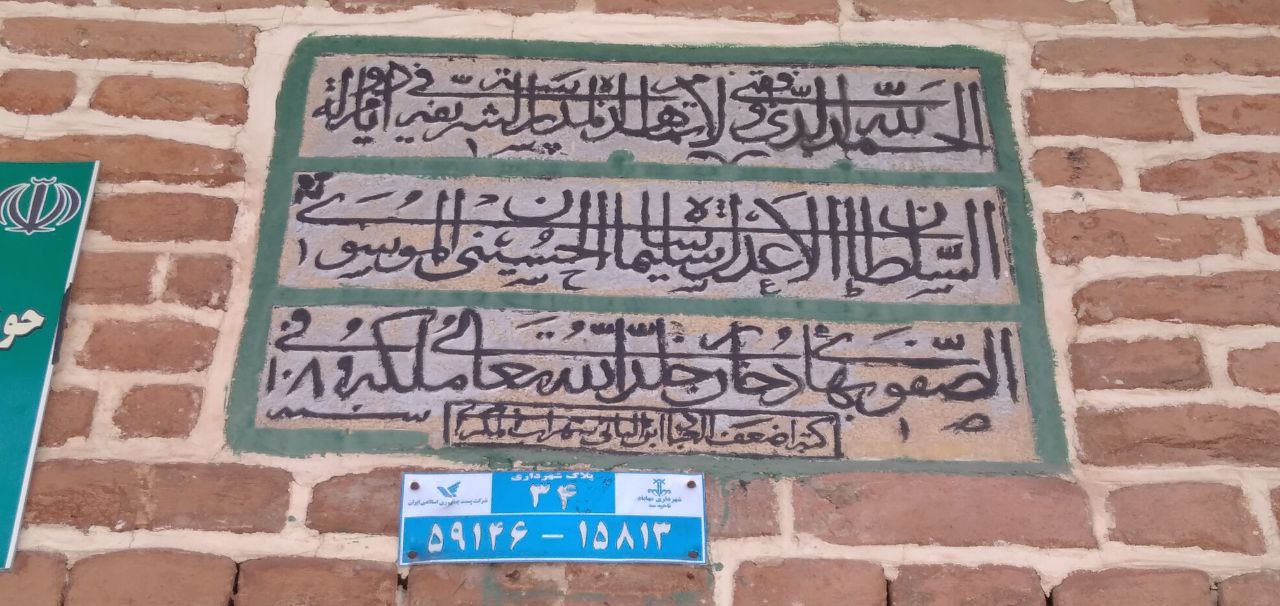 الحمد لله الذی وفقنی لاتمام هذه المدرسة الشریفه فی ایام دولة
السلطان الاعدل شاه سلیمان الحسینی الموسوی
الصفوی بهادر خان خلد الله تعالی ملکه فی
سنه ۱۰۸
کتبه اضعف
حو
پلاک شهرداری
۳۴
شهرداری مهاباد
ناحیه سه
شرکت پست جمهوری اسلامی ایران
۵۹۱۴۶ – ۱۵۸۱۳